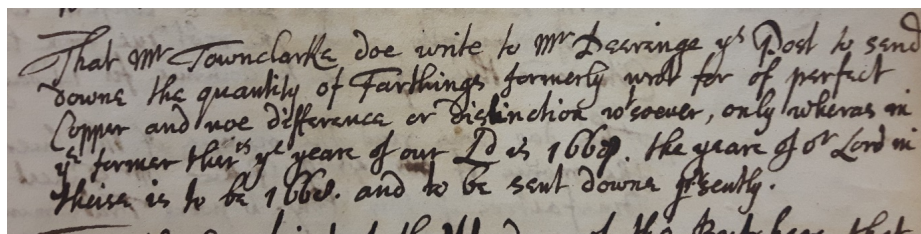 That Mr Townclarke doe write to Mr Deeringe ys Post to send
downe the quantity of Farthings formerly writ for of perfect
Copper and noe difference or distinction wtsoever, only wheras in
ye former ther's ye yeare of our Ld is 1668. the yeare of or Lord in
theise is to be 1668. and to be sent downe prsently.
of the Butchers that